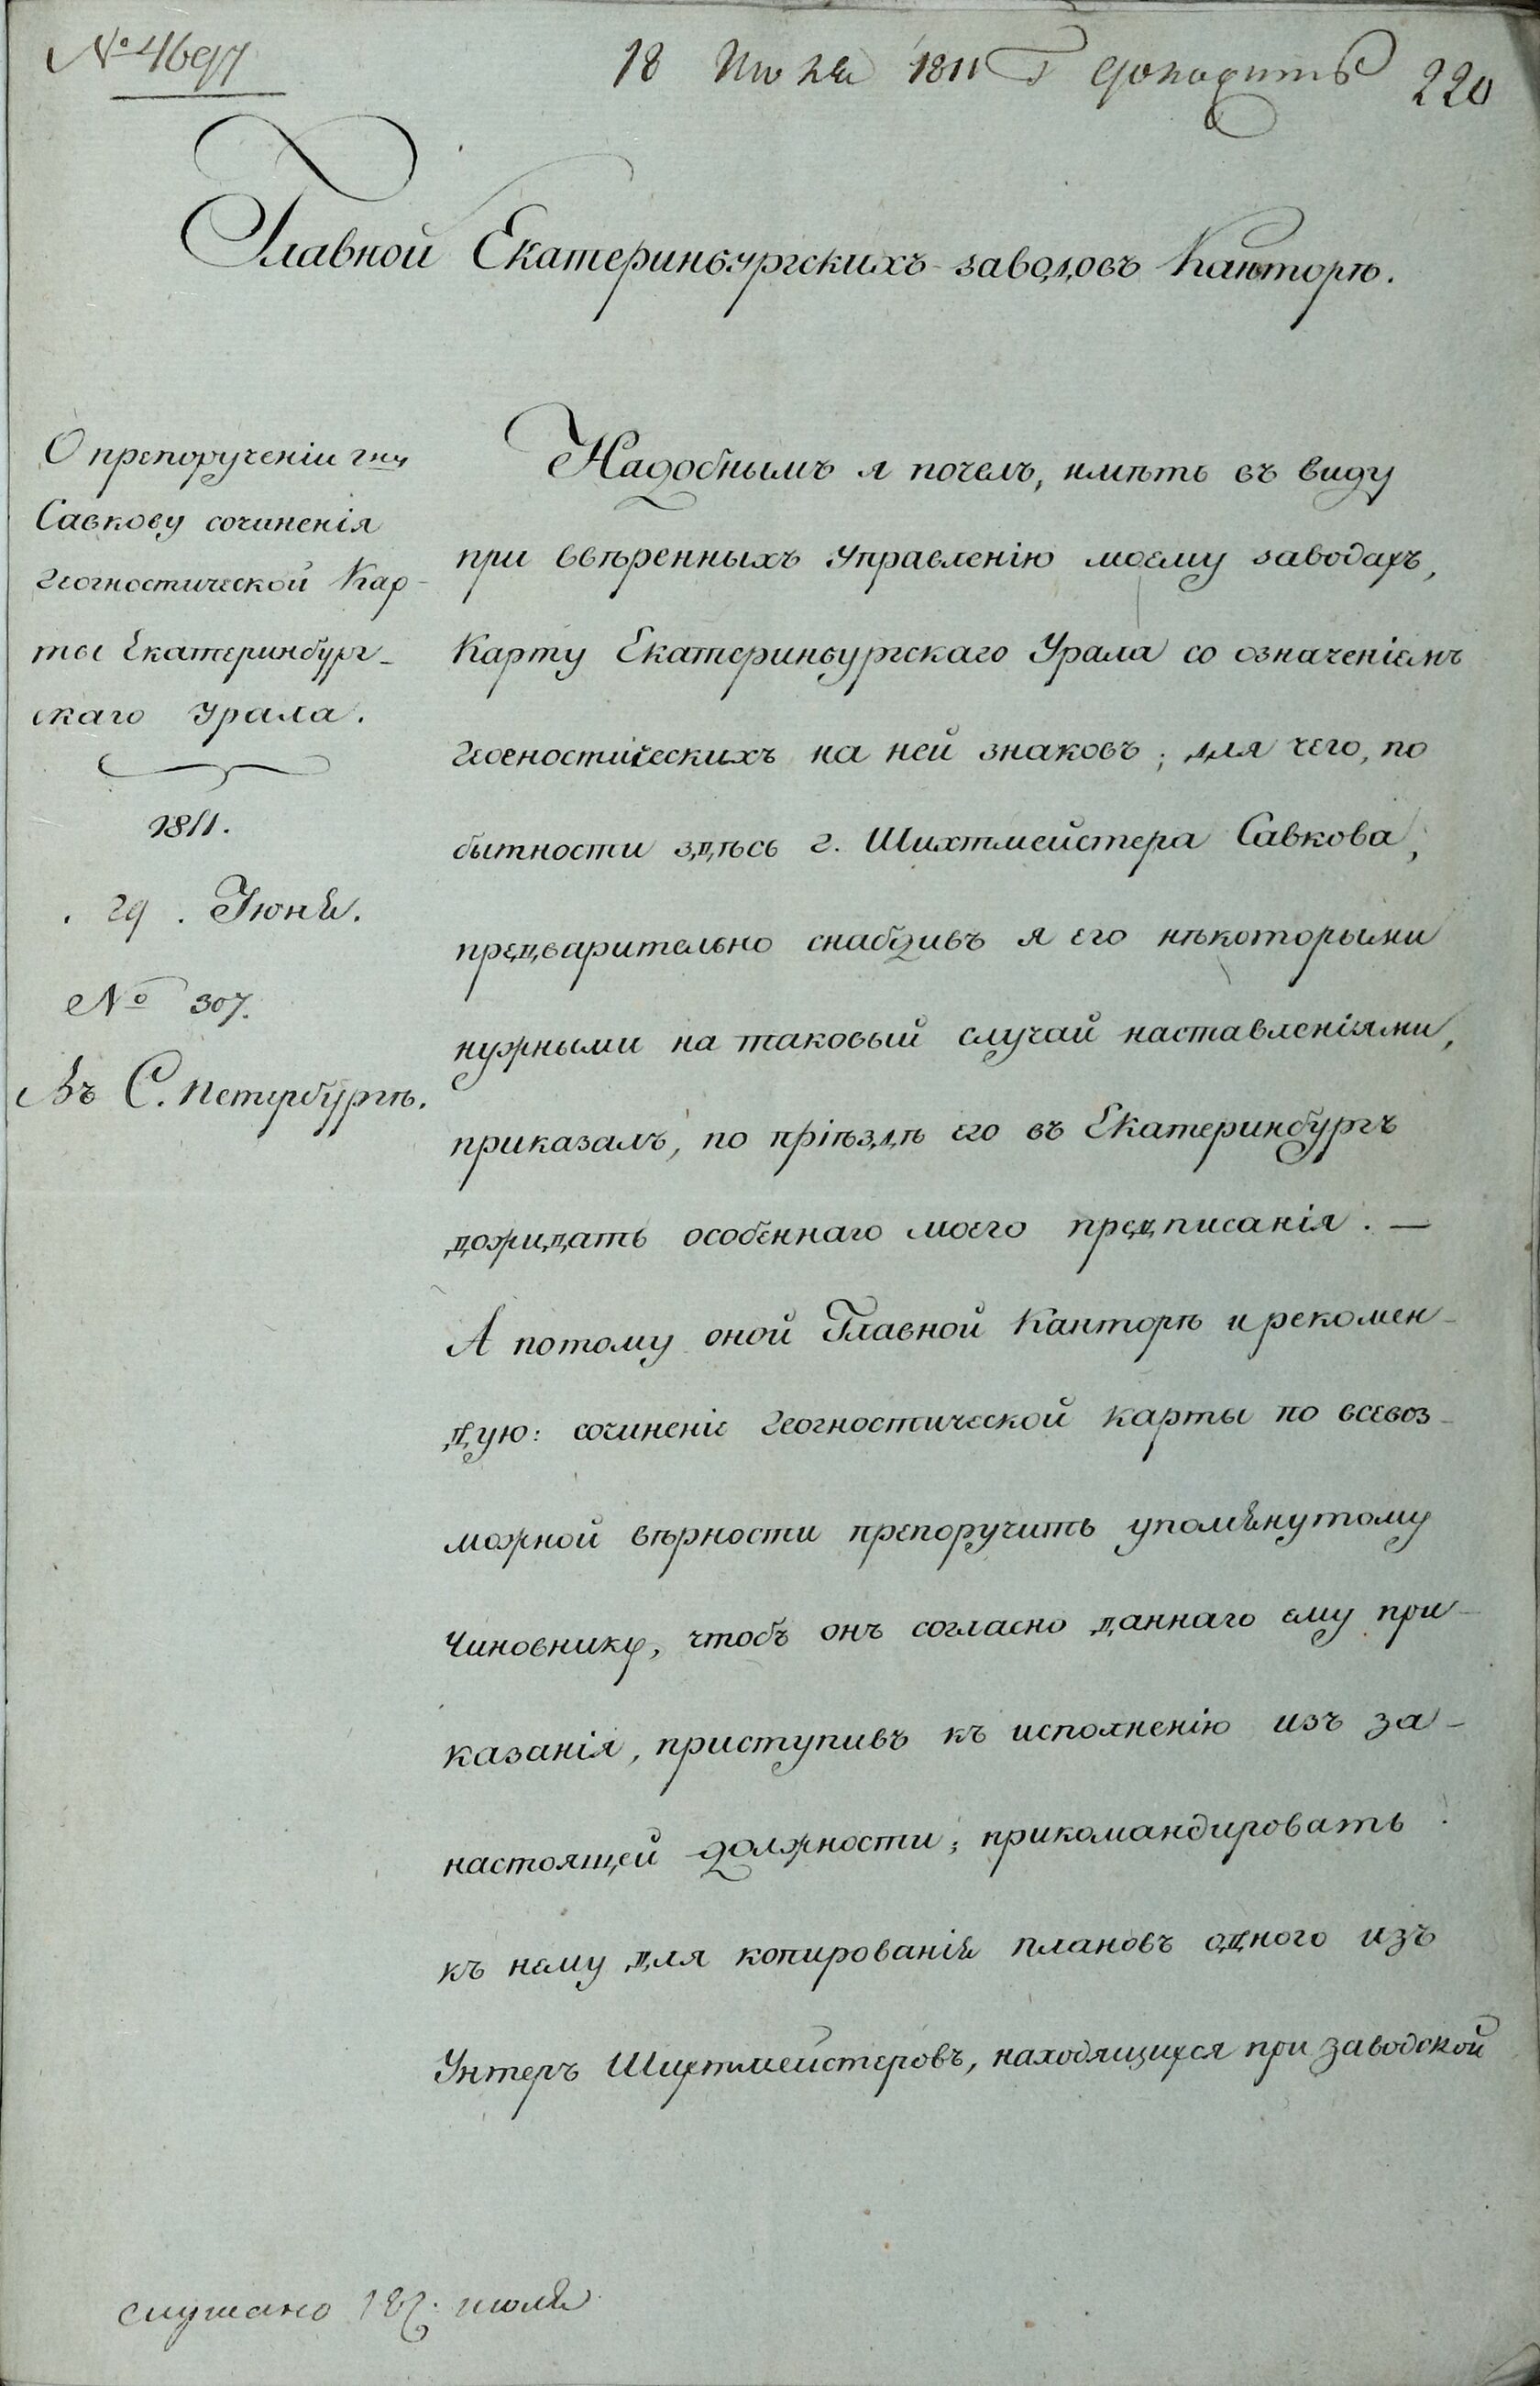 № 4697
18 Июля 1811 Г доходитъ 220
Главной Екатеринбургскихъ заводовъ Канторѣ.
О препорученіи гну
Савкову сочиненія
Геогностической Кар-
ты Екатеринбург-
скаго Урала.
1811.
. 29 . Іюня.
№ 307.
Въ С. Петербургѣ.
Надобнымъ я почелъ, имѣть въ виду
при ввѣренныхъ управленію моему заводахъ,
Карту Екатеринбургскаго Урала со означеніемъ
геогностическихъ на ней знаковъ; для чего, по
бытности здѣсь г. Шихтмейстера Савкова,
предварительно снабдивъ я его нѣкоторыми
нужными на таковый случай наставленіями,
приказалъ, по пріѣздѣ его въ Екатеринбургъ
дожидать особеннаго моего предписанія. —
А потому оной Главной Канторѣ и рекомен-
дую: сочиненіе Геогностической карты по всевоз-
можной вѣрности препоручить упомянутому
Чиновнику, чтобъ онъ согласно даннаго ему при-
казанія, приступивъ къ исполненію изъ за-
настоящей должности; прикомандировать
къ нему для копированія плановъ одного изъ
Унтеръ Шихтмейстеровъ, находящихся при заводской
слушано 18. июля